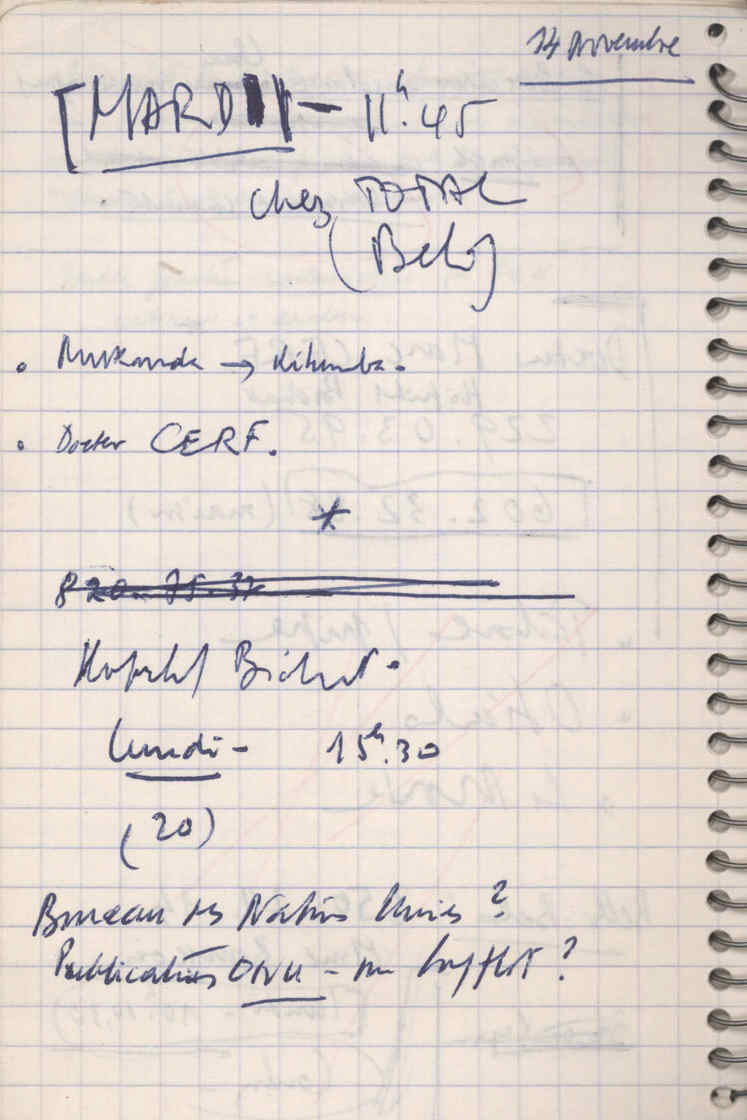 14 Novembre
[MARDI - 11h.45
chez TOTAL
(Belg)
• → Kitumba.
• Docter CERF.
*
820.75.37
Hopital Bichat.
Lundi - 15h.30
(20)
Bureau des Nations Unies ?
Publications ONU - rue ?